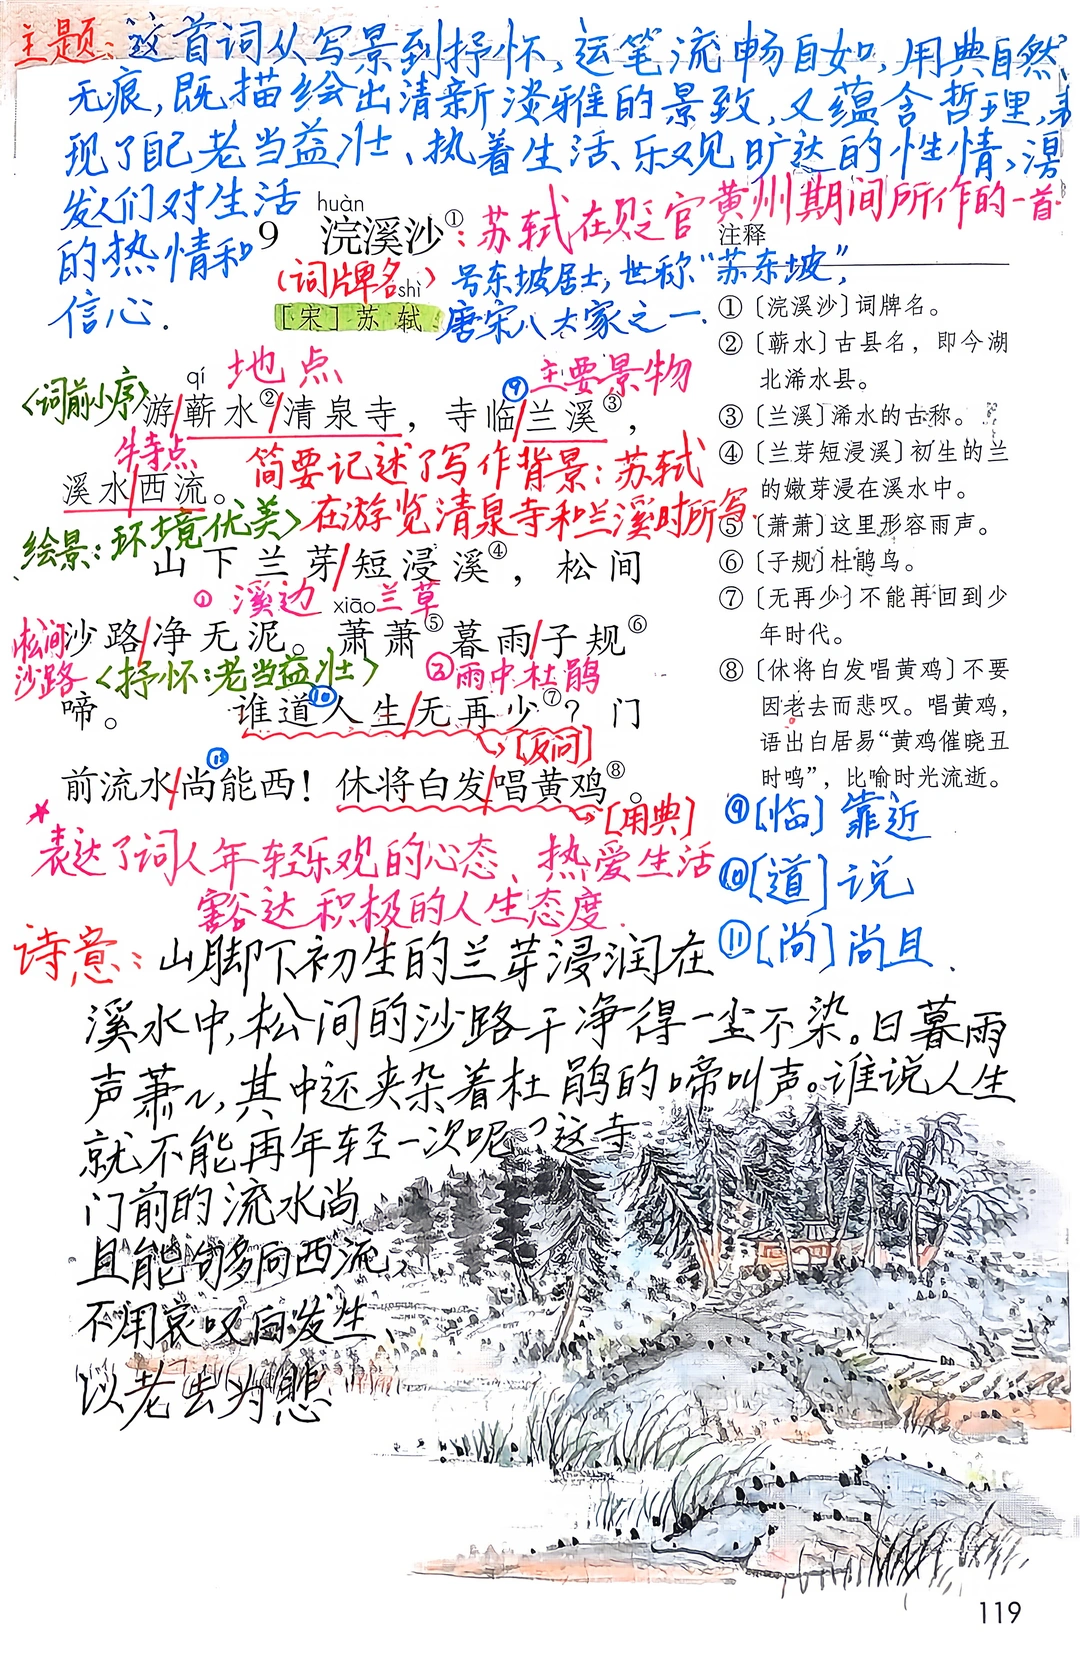 主题：这首词从写景到抒怀，运笔流畅自如，用典自然、
无痕，既描绘出清新淡雅的景致，又蕴含哲理，表
现了自己老当益壮、执着生活、乐观旷达的性情，激
发人们对生活
的热情和
信心．
huàn
9 浣溪沙①：苏轼在贬官黄州期间所作的一首
（词牌名）
号东坡居士，世称“苏东坡”，
shì
［宋］苏轼 唐宋八大家之一．
地点
主要景物
〈词前小序〉
qí
游/蕲水②/清泉寺，寺临⑨/兰溪③，
特点
溪水/西流。
简要记述了写作背景：苏轼
在游览清泉寺和兰溪时所写．
绘景：环境优美〉
山下兰芽/短浸溪④，松间
① 溪边兰草
xiāo
沙路/净无泥。萧萧⑤暮雨/子规⑥
松间
沙路
〈抒怀：老当益壮〉
②雨中杜鹃
啼。 谁道⑩人生/无再少⑦？门
［反问］
前流水/尚⑪能西！休将白发/唱黄鸡⑧。
［用典］
表达了词人年轻乐观的心态、热爱生活
豁达积极的人生态度．
注释
①〔浣溪沙〕词牌名。
②〔蕲水〕古县名，即今湖
北浠水县。
③〔兰溪〕浠水的古称。
④〔兰芽短浸溪〕初生的兰
的嫩芽浸在溪水中。
⑤〔萧萧〕这里形容雨声。
⑥〔子规〕杜鹃鸟。
⑦〔无再少〕不能再回到少
年时代。
⑧〔休将白发唱黄鸡〕不要
因老去而悲叹。唱黄鸡，
语出白居易“黄鸡催晓丑
时鸣”，比喻时光流逝。
⑨［临］靠近
⑩［道］说
⑪［尚］尚且．
诗意：山脚下初生的兰芽浸润在
溪水中，松间的沙路干净得一尘不染。日暮雨
声萧〃，其中还夹杂着杜鹃的啼叫声。谁说人生
就不能再年轻一次呢？这寺
门前的流水尚
且能够向西流，
不用哀叹白发生、
以老去为悲
119